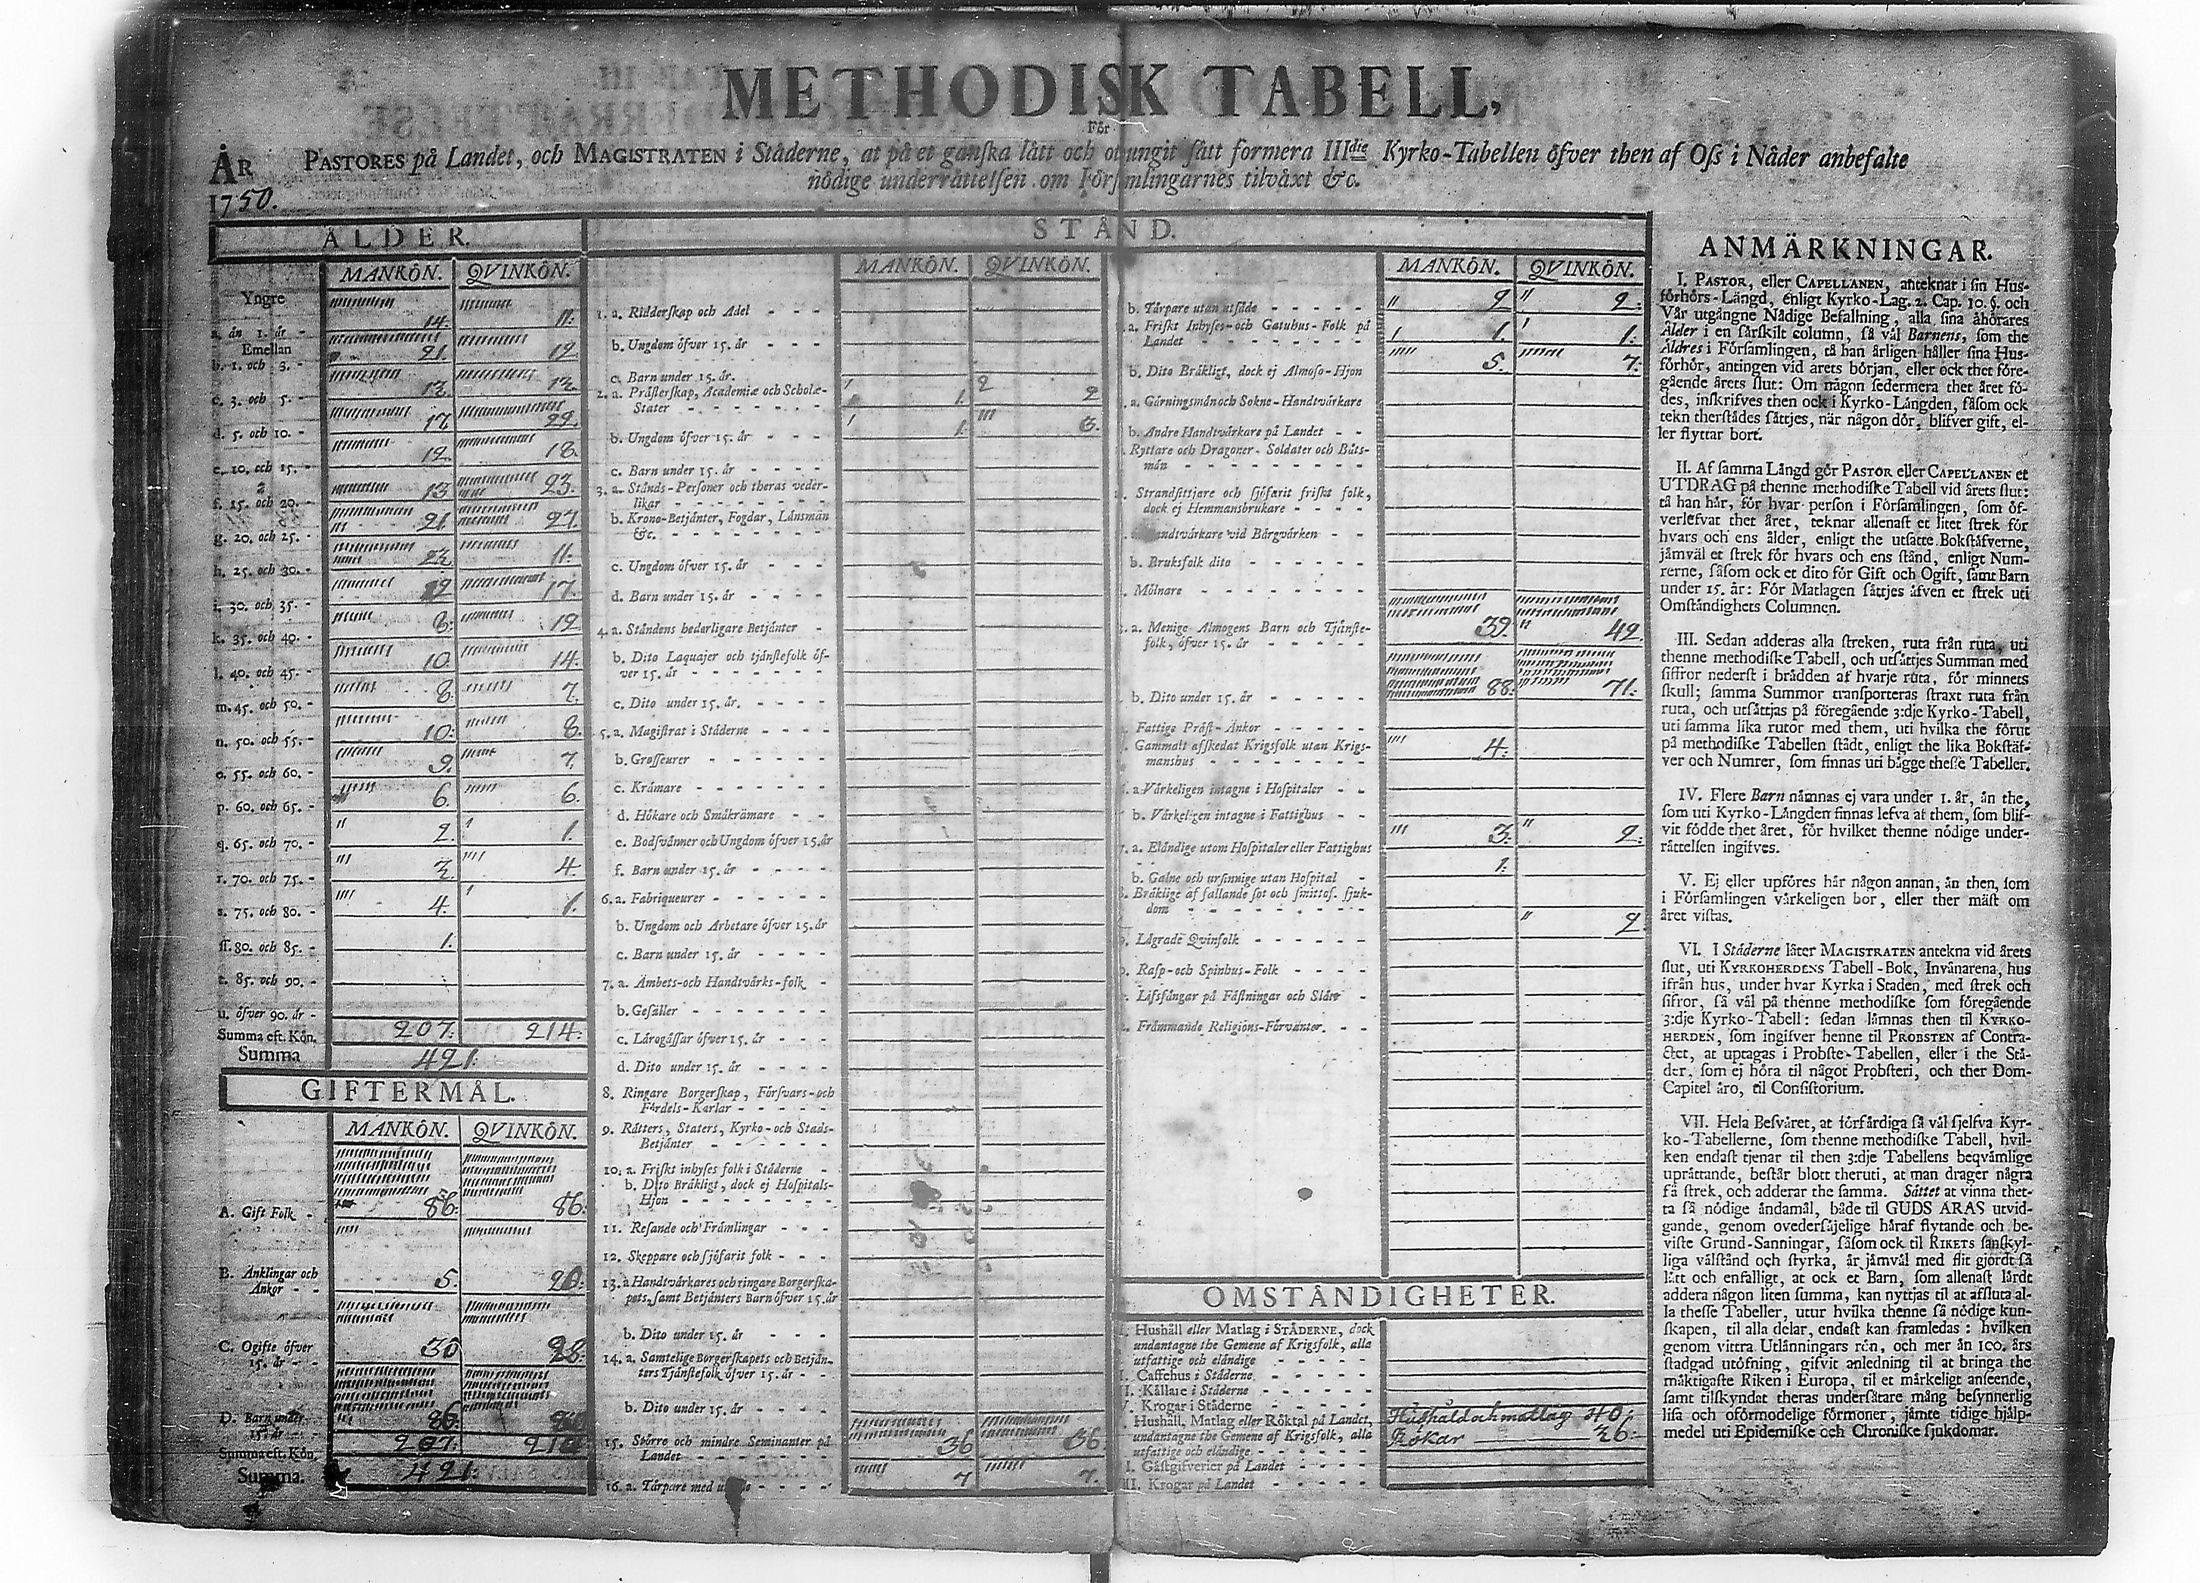 METHODISK TABELL,
För
ÅR PASTORES på Landet, och MAGISTRATEN i Städerne, at på et ganska lätt och otvungit sätt formera IIIdie Kyrko-Tabellen öfver then af Oss i Nåder anbefalte
nödige underrättelsen om Församlingarnes tilväxt &c.
1750.
ÅLDER.
MANKÖN. QVINKÖN.
Yngre
a. än 1. år - 14. 11.
Emellan
b. 1. och 3. - 21. 12.
c. 3. och 5. - 13. 13.
d. 5. och 10. - 17. 22.
e. 10. och 15. - 12. 18.
f. 15. och 20. - 13. 23.
g. 20. och 25. - 21. 27.
h. 25. och 30. - 23. 11.
i. 30. och 35. - 19. 17.
k. 35. och 40. - 8. 12
l. 40. och 45. - 10. 14.
m. 45. och 50. - 8. 7.
n. 50. och 55. - 10. 8.
o. 55. och 60. - 9. 7.
p. 60. och 65. - 6. 6.
q. 65. och 70. - 2. 1.
r. 70. och 75. - 3. 4.
s. 75. och 80. - 4. 1.
ſſ. 80. och 85. - 1.
t. 85. och 90. -
u. öfver 90. år -
Summa eft. Kön. 207. 214.
Summa 421.
GIFTERMÅL.
MANKÖN. QVINKÖN.
A. Gift Folk - 86. 86.
B. Änklingar och
Änkor - - 5. 20.
C. Ogifte öfver
15. år - - 30 28.
D. Barn under
15. år - - 86.
Summa eft. Kön. 207.
Summa. 421.
STÅND.
MANKÖN. QVINKÖN.
1. a. Ridderskap och Adel - - -
b. Ungdom öfver 15. år - - -
c. Barn under 15. år.
2. a. Prästerskap, Academiæ och Scholæ-
Stater - - - - - - - 1. 2
b. Ungdom öfver 15. år - - - 1. 3.
c. Barn under 15. år - - - -
3. a. Stånds-Personer och theras veder-
likar - - - - - - -
b. Krono-Betjänter, Fogdar, Länsmän
&c. - - - - - - - -
c. Ungdom öfver 15. år - - - -
d. Barn under 15. år - - - -
4. a. Ståndens hederligare Betjänter -
b. Dito Laquajer och tjänstefolk öf-
ver 15. år - - - - - - -
c. Dito under 15. år. - - - -
5. a. Magistrat i Städerne - - - -
b. Grosseurer - - - - - -
c. Krämare - - - - - - -
d. Hökare och Småkrämare - - -
e. Bodsvänner och Ungdom öfver 15. år
f. Barn under 15. år - - - -
6. a. Fabriqueurer - - - - - -
b. Ungdom och Arbetare öfver 15. år
c. Barn under 15. år - - - -
7. a. Ämbets-och Handtvärks-folk -
b. Gesäller - - - - - - -
c. Lärogåssar öfver 15. år - - -
d. Dito under 15. år - - - -
8. Ringare Borgerskap, Försvars-och
Fördels-Karlar - - - - -
9. Rätters, Staters, Kyrko-och Stads-
Betjänter - - - - - - -
10. a. Friskt inhyses folk i Städerne -
b. Dito Bräkligt, dock ej Hospitals-
Hjon - - - - - - - -
11. Resande och Främlingar - - -
12. Skeppare och sjöfarit folk - - -
13. a. Handtvärkares och ringare Borgerska-
pets, samt Betjänters Barn öfver 15. år
b. Dito under 15. år - - -
14. a. Samtelige Borgerskapets och Betjän-
ters Tjänstefolk öfver 15. år - -
b. Dito under 15. år - - - -
15. Större och mindre Seminanter på
Landet - - - - - - - 36 36
16. a. Tårpare med - - - - 7 7.
MANKÖN. QVINKÖN.
b. Tårpare utan utsäde - - - - 2 2.
a. Friskt Inhyses-och Gatuhus-Folk på
Landet - - - - - - - - 1. 1.
b. Dito Bräkligt, dock ej Almoso-Hjon 5. 7.
a. Gärningsmän och Sokne-Handtvärkare
b. Andre Handtvärkare på Landet - -
Ryttare och Dragoner. Soldater och Båts-
män - - - - - - - -
Strandsittjare och sjöfarit friskt folk,
dock ej Hemmansbrukare - - - -
Handtvärkare vid Bärgvärken - -
b. Bruksfolk dito - - - - - -
Mölnare - - - - - - - -
a. Menige Almogens Barn och Tjänste-
folk, öfver 15. år - - - - - - 39. 42.
b. Dito under 15. år - - - - - 88. 71.
Fattige Präst-Änkor - - - - -
Gammalt afskedat Krigsfolk utan Krigs-
manshus - - - - - - - - 4.
a. Värkeligen intagne i Hospitaler - -
b. Värkeligen intagne i Fattighus - -
a. Eländige utom Hospitaler eller Fattighus 3. 2.
b. Galne och ursinnige utan Hospital - 1.
Bräklige af fallande sot och smittos. sjuk-
dom - - - - - - - -
Lägrade Qvinfolk - - - - - - 2.
Rasp-och Spinhus-Folk - - - -
Lifsfångar på Fästningar och Slått -
Främmande Religions-Förvanter. - -
OMSTÄNDIGHETER.
Hushåll eller Matlag i STÄDERNE, dock
undantagne the Gemene af Krigsfolk, alla
utfattige och eländige - - - - -
Caffehus i Städerne - - - - -
Källare i Städerne - - - - - -
Krogar i Städerne - - - - -
Hushåll, Matlag eller Röktal på Landet, Hushåld och matlag 40.
undantagne the Gemene af Krigsfolk, alla Rökar 36.
utfattige och eländige - - - -
Gästgifverier på Landet - - - -
Krogar på Landet - - - - -
ANMÄRKNINGAR.
I. PASTOR, eller CAPELLANEN, anteknar i sin Hus-
förhörs-Längd, enligt Kyrko-Lag. 2. Cap. 10. §. och
Vår utgångne Nådige Befallning, alla sina åhörares
Ålder i en särskilt column, så väl Barnens, som the
Äldres i Församlingen, tå han årligen håller sina Hus-
förhör, antingen vid årets början, eller ock thet före-
gående årets slut: Om någon sedermera thet året fö-
des, inskrifves then ock i Kyrko-Längden, såsom ock
tekn therstädes sättjes, när någon dör, blifver gift, el-
ler flyttar bort.
II. Af samma Längd gör PASTOR eller CAPELLANEN et
UTDRAG på thenne methodiske Tabell vid årets slut:
tå han här, för hvar person i Församlingen, som öf-
verlefvat thet året, teknar allenast et litet strek för
hvars och ens ålder, enligt the utsatte Bokstäfverne,
jämväl et strek för hvars och ens stånd, enligt Num-
rerne, såsom ock et dito för Gift och Ogift, samt Barn
under 15. år: För Matlagen sättjes äfven et strek uti
Omständighets Columnen.
III. Sedan adderas alla streken, ruta från ruta, uti
thenne methodiske Tabell, och utsättjes Summan med
siffror nederst i brädden af hvarje ruta, för minnets
skull; samma Summor transporteras straxt ruta från
ruta, och utsättjas på föregående 3:dje Kyrko-Tabell,
uti samma lika rutor med them, uti hvilka the förut
på methodiske Tabellen städt, enligt the lika Bokstäf-
ver och Numrer, som finnas uti bägge thesse Tabeller.
IV. Flere Barn nämnas ej vara under 1. år, än the,
som uti Kyrko-Längden finnas lefva af them, som blif-
vit födde thet året, för hvilket thenne nödige under-
rättelsen ingifves.
V. Ej eller upföres här någon annan, än then, som
i Församlingen värkeligen bor, eller ther mäst om
året vistas.
VI. I Städerne låter MAGISTRATEN antekna vid årets
slut, uti KYRKOHERDENS Tabell-Bok, Invånarena, hus
ifrån hus, under hvar Kyrka i Staden, med strek och
sifror, så väl på thenne methodiske som föregående
3:dje Kyrko-Tabell: sedan lämnas then til KYRKO-
HERDEN, som ingifver henne til PROBSTEN af Contra-
ctet, at uptagas i Probste-Tabellen, eller i the Stä-
der, som ej höra til något Probsteri, och ther Dom-
Capitel äro, til Consistorium.
VII. Hela Besväret, at förfärdiga så väl sjelfva Kyr-
ko-Tabellerne, som thenne methodiske Tabell, hvil-
ken endast tjenar til then 3:dje Tabellens beqvämlige
uprättande, består blott theruti, at man drager några
få strek, och adderar the samma. Sättet at vinna thet-
ta så nödige ändamål, både til GUDS ÄRAS utvid-
gande, genom ovedersäjelige häraf flytande och be-
viste Grund-Sanningar, såsom ock til RIKETS sanskyl-
liga välstånd och styrka, är jämväl med flit gjordt så
lätt och enfalligt, at ock et Barn, som allenast lärdt
addera någon liten summa, kan nyttjas til at afsluta al-
la thesse Tabeller, utur hvilka thenne så nödige kun-
skapen, til alla delar, endast kan framledas: hvilken
genom vittra Utlänningars rön, och mer än 100. års
stadgad utöfning, gifvit anledning til at bringa the
mäktigaste Riken i Europa, til et märkeligt anseende,
samt tilskyndat theras undersåtare mång besynnerlig
lisa och oförmodelige förmoner, jämte tidige hjälp-
medel uti Epidemiske och Chroniske sjukdomar.